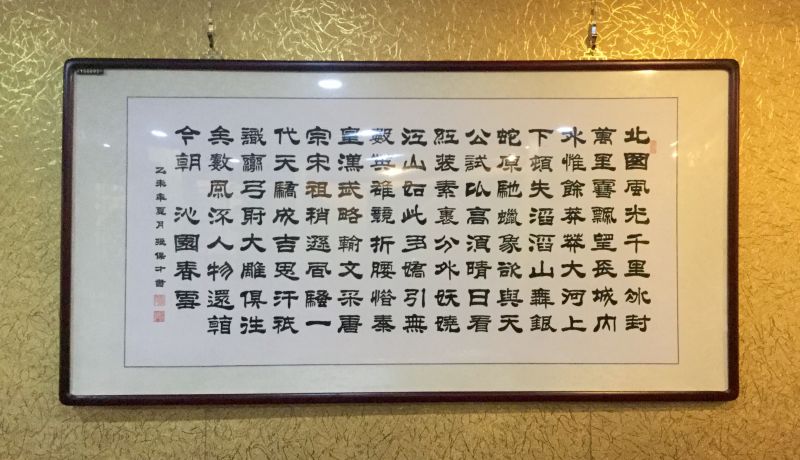 北國風光千里冰封
萬里雪飄望長城內
外惟餘莽莽大河上
下頓失滔滔山舞銀
蛇原馳蠟象欲與天
公試比高須晴日看
紅裝素裹分外妖嬈
江山如此多嬌引無
數英雄競折腰惜秦
皇漢武略輸文采唐
宗宋祖稍遜風騷一
代天驕成吉思汗祇
識彎弓射大雕俱往
矣數風流人物還看
今朝 沁園春雪
乙未年夏月 張保才書